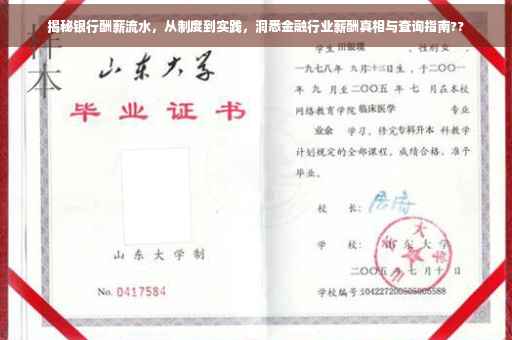 揭秘银行酬薪流水，从制度到实践，洞悉金融行业薪酬真相与查询指南??
样本
山东大学
毕业证书
山东大学制
No. 0417584
学生
性别女，
一九七八年 九月十三日生，于二〇〇一
年 九 月至二〇〇五 年 七 月在本校
网络教育学院 临床医学 专业
业余 学习，修完专科升本 科教学
计划规定的全部课程，成绩合格，准予
毕业。
校 长：
学 校： 山东大学
二〇〇五年七月十日
学校编号: